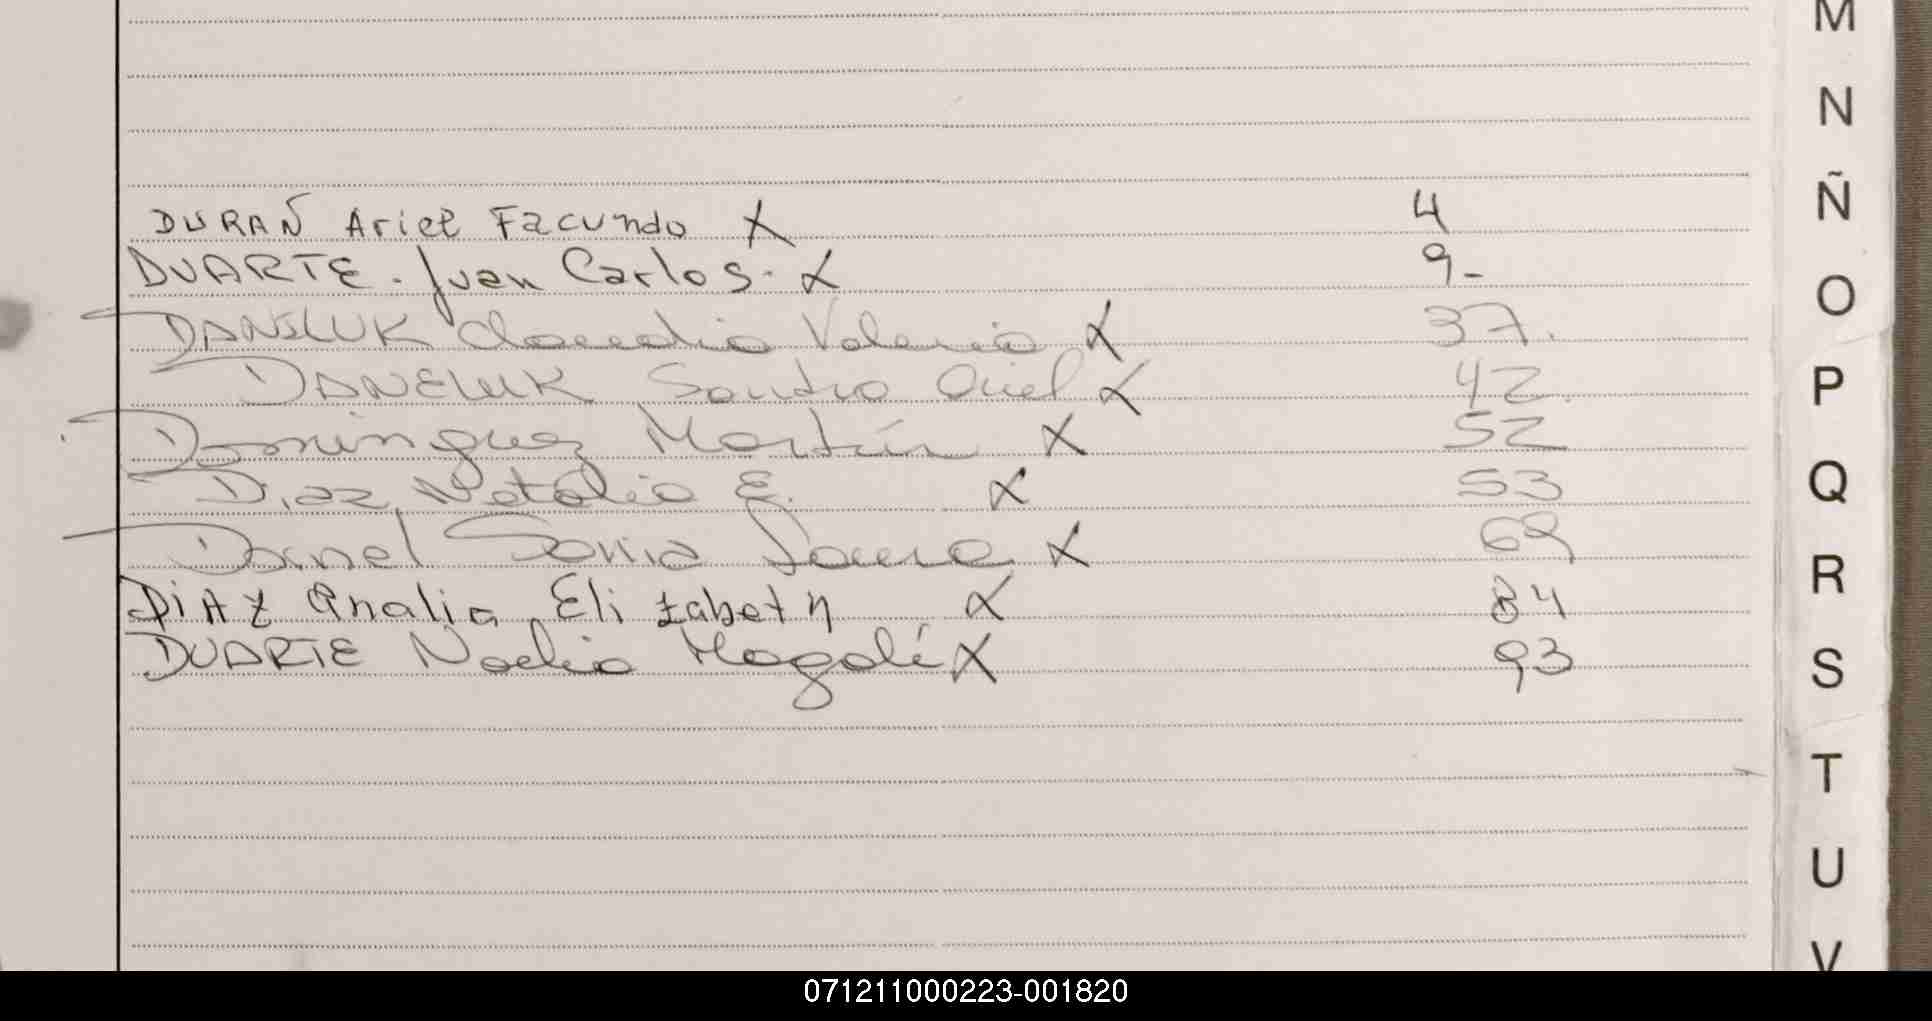 DURAN Ariel Facundo X 4
DUARTE. Juan Carlos. X 9-
DANELUK Claudia Valeria X 37.
DANELUK Sandra Ariel X 42.
Dominguez Martín X 52
Diaz Natalia E. X 53
Daniel Sonia Laura X 69
DiAZ Analia Elizabeth X 84
DUARTE Nadia Magalí X 93
M
N
Ñ
O
P
Q
R
S
T
U
V
071211000223-001820